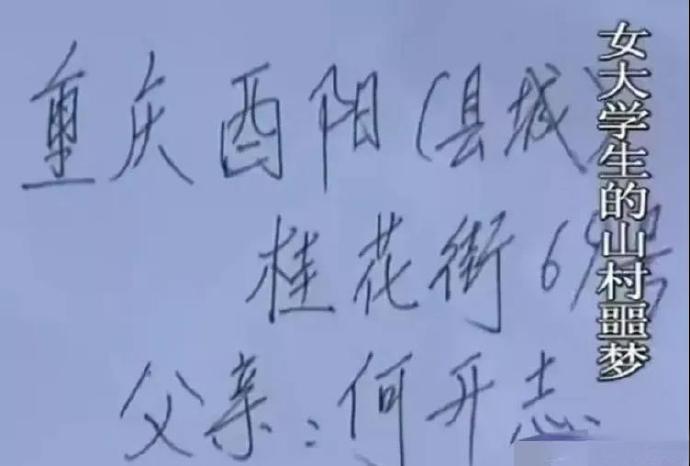 重庆酉阳(县城)
桂花街69号
父亲:何开志
女大学生的山村噩梦